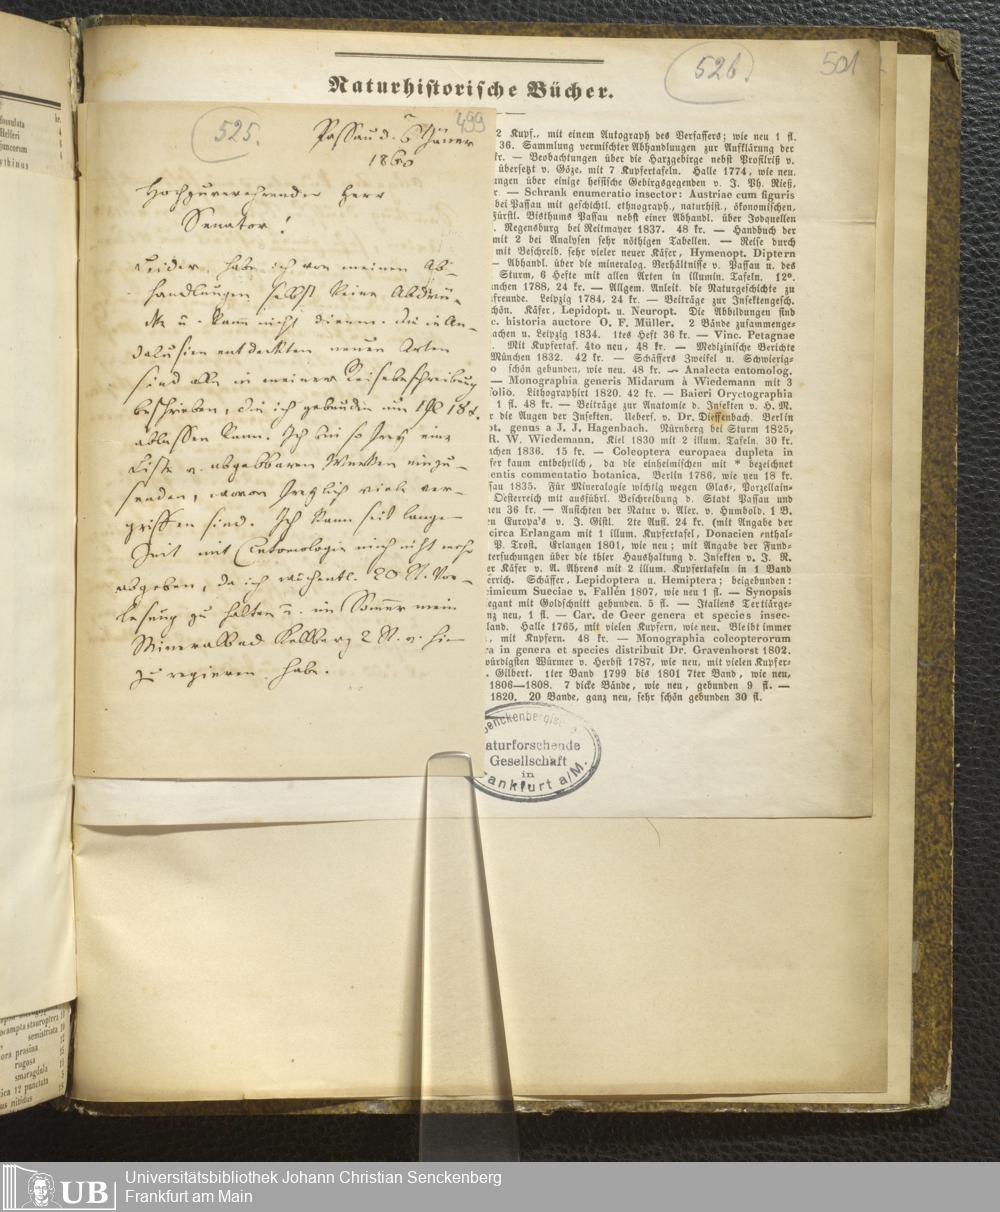 Naturhistorische Bücher.
526.
501
525.
499
Passau d. 6 Jäner
1860
Hochzuverehrender Herr
Senator!
Leider habe ich von meinen Ab-
handlungen selbst keine Abdrü-
cke u. kann nicht dienen. Die in An-
dalusien entdeckten neuen Arten
sind alle in meiner Reisebeschreibung
beschrieben, die ich gebunden um 1 fl 18 x.
ablassen kann. Ich bin so frey eine
Liste v. abgebbaren Werken einzu-
senden, wovon freylich viele ver-
griffen sind. Ich kann seit lange
Zeit mit Entomologie mich nicht mehr
abgeben, da ich wöchentl. 20 St. Vor-
lesung zu halten u. im Sommer mein
Mineralbad Kellberg 2 St. v. hier
zu regieren habe.
2 Kupf., mit einem Autograph des Verfassers; wie neu 1 fl.
36. Sammlung vermischter Abhandlungen zur Aufklärung der
kr. — Beobachtungen über die Harzgebirge nebst Profilriß v.
übersetzt v. Göze, mit 7 Kupfertafeln. Halle 1774, wie neu.
ungen über einige hessische Gebirgsgegenden v. J. Ph. Rieß,
r. — Schrank enumeratio insector: Austriae cum figuris
bei Passau mit geschichtl. ethnograph., naturhist., ökonomischen,
Fürstl. Bisthums Passau nebst einer Abhandl. über Jodquellen
. Regensburg bei Reitmayer 1837. 48 kr. — Handbuch der
mit 2 bei Analysen sehr nöthigen Tabellen. — Reise durch
mit Beschreib. sehr vieler neuer Käfer, Hymenopt. Diptern
— Abhandl. über die mineralog. Verhältnisse v. Passau u. des
Sturm, 6 Hefte mit allen Arten in illumin. Tafeln. 12°.
nchen 1788, 24 kr. — Allgem. Anleit. die Naturgeschichte zu
freunde. Leipzig 1784, 24 kr. — Beiträge zur Insektengesch.
chön. Käfer, Lepidopt. u. Neuropt. Die Abbildungen sind
c. historia auctore O. F. Müller. 2 Bände zusammenge-
achen u. Leipzig 1834. 1tes Heft 36 kr. — Vinc. Petagnae
. Mit Kupfertaf. 4to neu, 48 kr. — Medizinische Berichte
München 1832. 42 kr. — Schäffers Zweifel u. Schwierig-
o schön gebunden, wie neu. 48 kr. — Analecta entomolog.
— Monographia generis Midarum à Wiedemann mit 3
folio. Lithographirt 1820. 42 kr. — Baieri Oryctographia
1 fl. 48 kr. — Beiträge zur Anatomie d. Insekten v. H. M.
r die Augen der Insekten. Uebers. v. Dr. Dieffenbach. Berlin
pt. genus a J. J. Hagenbach. Nürnberg bei Sturm 1825,
R. W. Wiedemann. Kiel 1830 mit 2 illum. Tafeln. 30 kr.
nchen 1836. 15 kr. — Coleoptera europaea dupleta in
fer kaum entbehrlich, da die einheimischen mit * bezeichnet
entis commentatio botanica. Berlin 1786, wie neu 18 kr.
sau 1835. Für Mineralogie wichtig wegen Glas-, Porzellain-
Oesterreich mit ausführl. Beschreibung d. Stadt Passau und
neu 36 kr. — Ansichten der Natur v. Alex. v. Humbold. 1 B.
en Europa's v. J. Gistl. 2te Aufl. 24 kr. (mit Angabe der
circa Erlangam mit 1 illum. Kupfertafel, Donacien enthal-
P. Trost. Erlangen 1801, wie neu; mit Angabe der Fund-
tersuchungen über die thier Haushaltung d. Insekten v. J. R.
er Käfer v. A. Ahrens mit 2 illum. Kupfertafeln in 1 Band
errich. Schäffer, Lepidoptera u. Hemiptera; beigebunden:
cimicum Sueciae v. Fallén 1807, wie neu 1 fl. — Synopsis
egant mit Goldschnitt gebunden. 5 fl. — Italiens Tertiärge-
nz neu, 1 fl. — Car. de Geer genera et species insec-
land. Halle 1765, mit vielen Kupfern, wie neu. Bleibt immer
, mit Kupfern. 48 kr. — Monographia coleopterorum
ra in genera et species distribuit Dr. Gravenhorst 1802.
würdigsten Würmer v. Herbst 1787, wie neu, mit vielen Kupfer-
. Gilbert. 1ter Band 1799 bis 1801 7ter Band, wie neu,
1806—1808. 7 dicke Bände, wie neu, gebunden 9 fl. —
1820. 20 Bande, ganz neu, sehr schön gebunden 30 fl.
Senckenbergische
Naturforschende
Gesellschaft
in
Frankfurt a/M.
semistriata 10
prasina 12
rugosa 15
smaragdula 11
12 punctata 5
nitidus 15
UB
Universitätsbibliothek Johann Christian Senckenberg
Frankfurt am Main